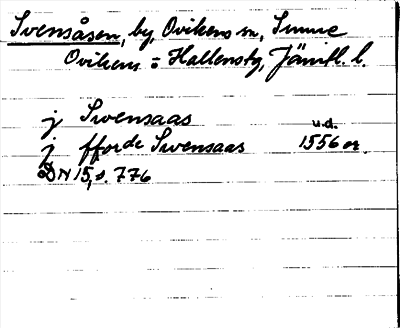 Svensåsen, by, Ovikens sn, Sunne
Oviken = Hallens tg, Jämtl. l.
j Swensaas
u.d.
j fforde Swensaas 1556 or.
DN 15, s. 776